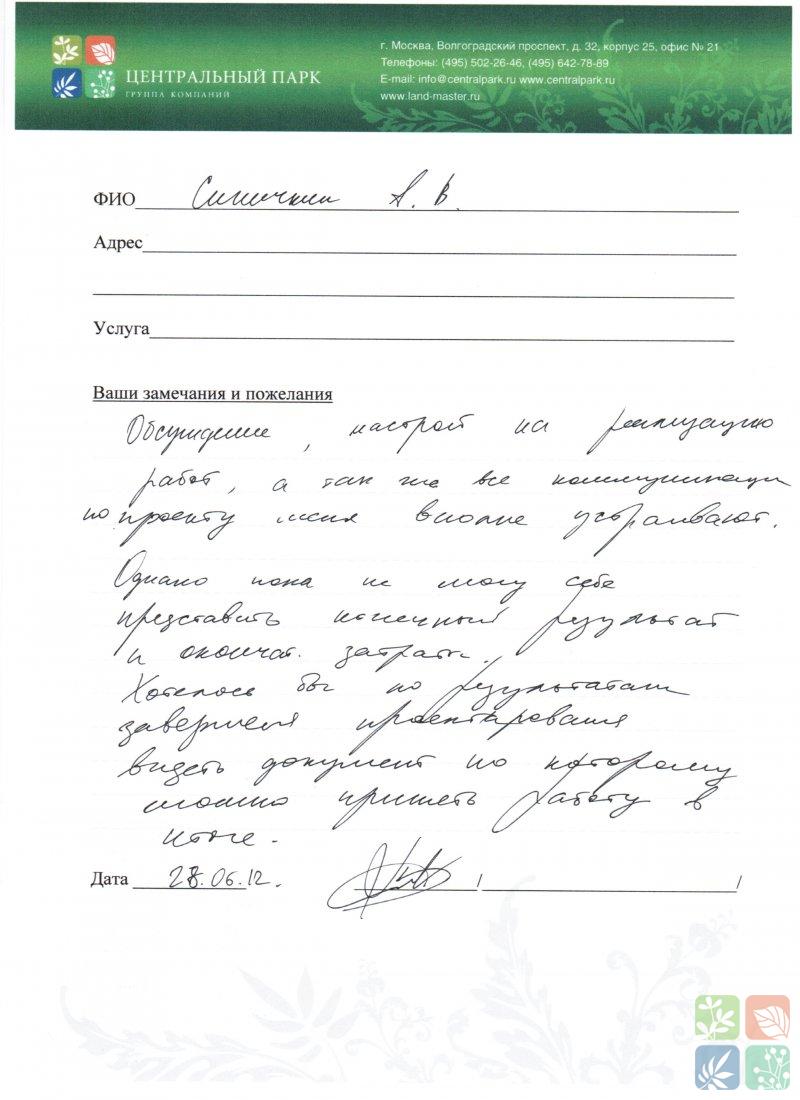 ЦЕНТРАЛЬНЫЙ ПАРК
ГРУППА КОМПАНИЙ
г. Москва, Волгоградский проспект, д. 32, корпус 25, офис № 21
Телефоны: (495) 502-26-46, (495) 642-78-89
E-mail: info@centralpark.ru www.centralpark.ru
www.land-master.ru
ФИО Синичкин А. В.
Адрес
Услуга
Ваши замечания и пожелания
Обсуждение, настрой на реализацию
работ, а так же все коммуникации
по проекту меня вполне устраивают.
Однако пока не могу себе
представить конечный результат
и окончат. затраты.
Хотелось бы по результатам
завершения проектирования
видеть документ по которому
можно принять работу в
итоге.
Дата 28.06.12.